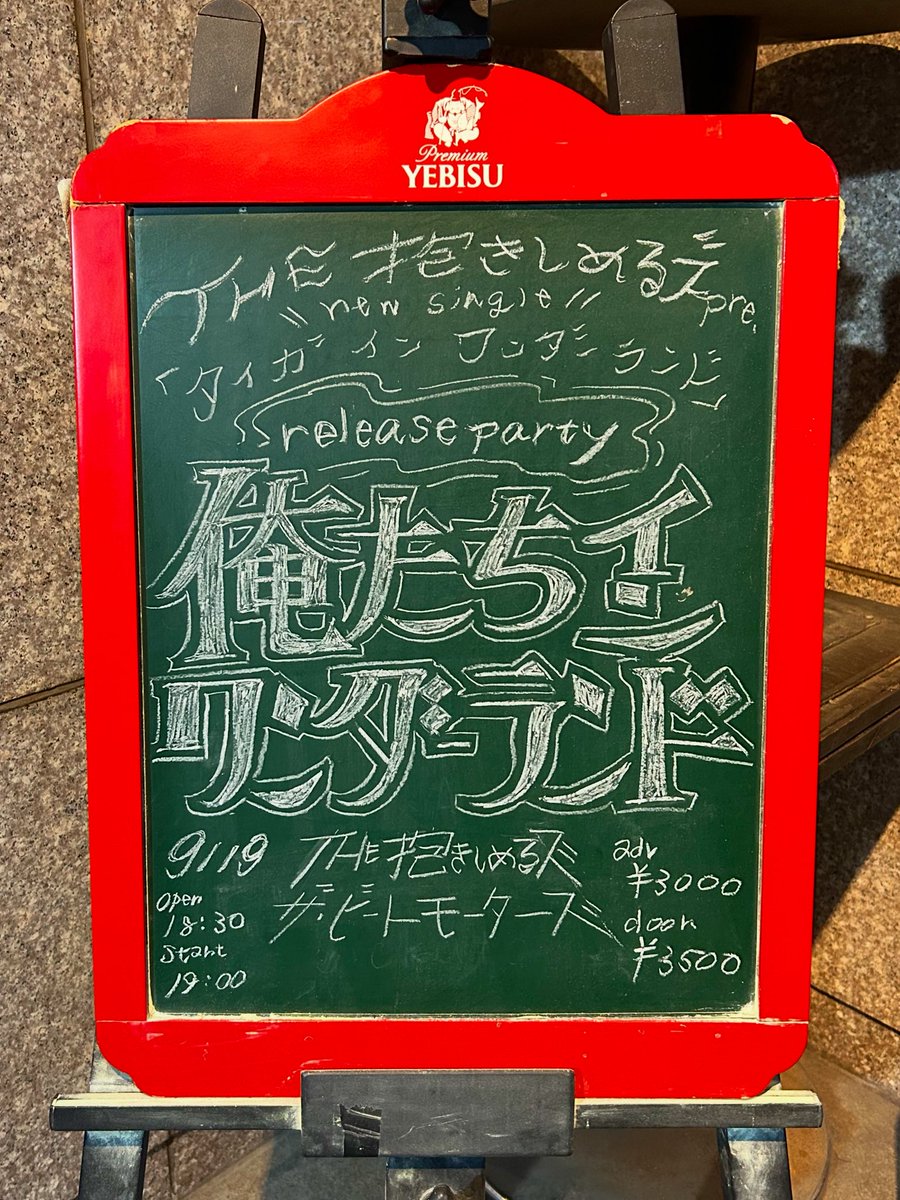 Premium
YEBISU
THE 抱きしめるズ pre.
"new single"
「タイガーインワンダーランド」
release party
俺たちイン
ワンダーランド
9/19
open
18:30
start
19:00
THE 抱きしめるズ
ザ・ビートモーターズ
adv
¥3000
door
¥3500